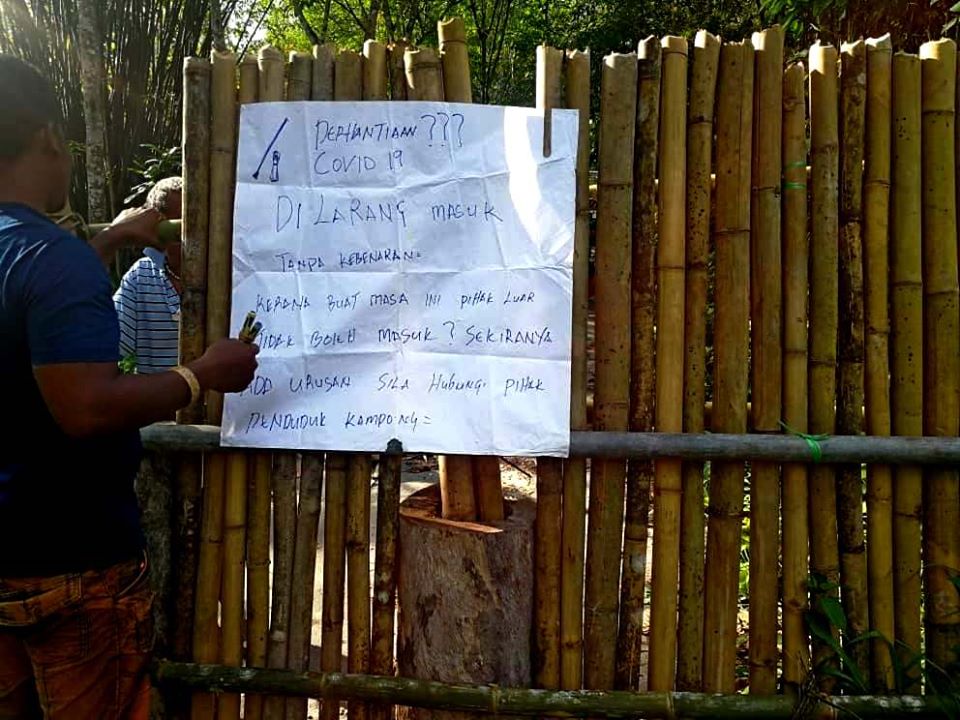 PERHANTIAAN???
COVID 19
DI LARANG MASUK
TANPA KEBENARAN.
KERANA BUAT MASA INI PIHAK LUAR
TIDAK BOLEH MASUK? SEKIRANYA
ADA URUSAN SILA HUBUNGI PIHAK
PENDUDUK KAMPONG=